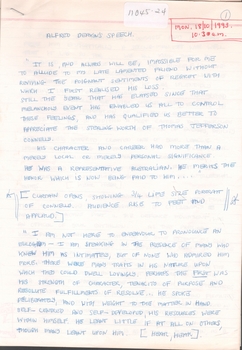 11045-24
1
MON. 18/10/1993
10.30 a.m.
ALFRED DEAKIN'S SPEECH.
IT IS AND ALWAYS WILL BE, IMPOSSIBLE FOR ME
TO ALLUDE TO MY LATE LAMENTED FRIEND WITHOUT
THE POIGNANT SENTIMENTS OF REGRET WITH
WHICH I FIRST REALISED HIS LOSS.
STILL THE YEARS THAT HAVE ELAPSED SINCE THAT
EVENT HAS ENABLED US ALL TO CONTROL
THESE FEELINGS, AND HAS QUALIFIED US BETTER TO
APPRECIATE THE STERLING WORTH OF THOMAS JEFFERSON
CONNELLY.
HIS CHARACTER AND CAREER HAD MORE THAN A
MERELY LOCAL OR MERELY PERSONAL SIGNIFICANCE
HE WAS A REPRESENTATIVE AUSTRALIAN. HE MERITS THE
HONOUR WHICH IS NOW BEING PAID TO HIM ....
[ CURTAIN OPENS SHOWING 1/2 LIFE SIZE PORTRAIT
OF CONNELLY. AUDIENCE RISE TO FEET AND
APPLAUD. ]
"I AM NOT HERE TO ENDEAVOUR TO PRONOUNCE AN
I AM SPEAKING IN THE PRESENCE OF MANY WHO
KNEW HIM AS INTIMATELY, BUT OF NONE WHO ADMIRED HIM
MORE. THERE WERE MANY TRAITS IN HIS NATURE UPON
WHICH TIME COULD DWELL LONGEST PERHAPS THE FIRST WAS
HIS STRENGTH OF CHARACTER, TENACITY OF PURPOSE AND
RESOLUTE FULFILLMENT OF RESOLVE. HE SPOKE
DELIBERATELY, AND WITH WEIGHT TO THE MATTER IN HAND
SELF-CENTRED AND SELF-DEPENDENT, HIS RESOURCES WERE
WITHIN HIMSELF. HE LEANT LITTLE IF AT ALL ON OTHERS
THOUGH MANY LEANT UPON HIM. [ HEAR, HEAR. ]